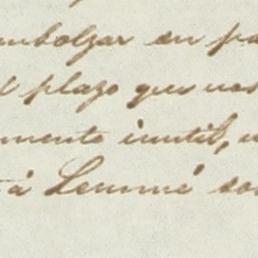 embolzar en pa
l plazo que nos
mente inutil, u
tá Lemmé so